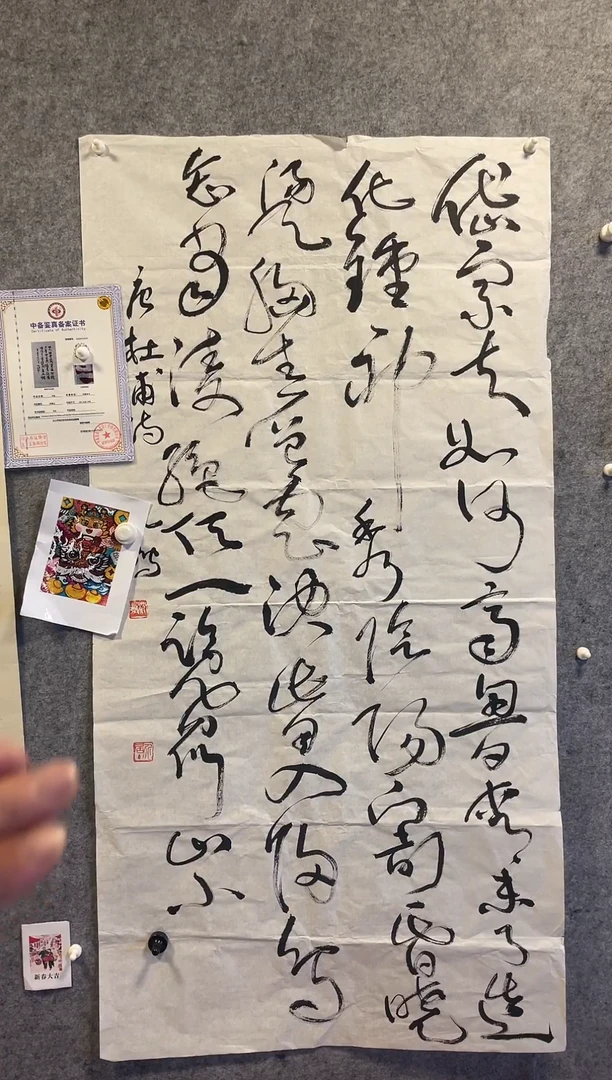 岱宗夫如何齊魯青未了造
化鍾神秀陰陽割昏曉
盪胸生層雲決眥入歸鳥
會當凌絕頂一覽眾山小
唐杜甫詩
中备鉴真备案证书
Certificate of Authenticity
新春大吉